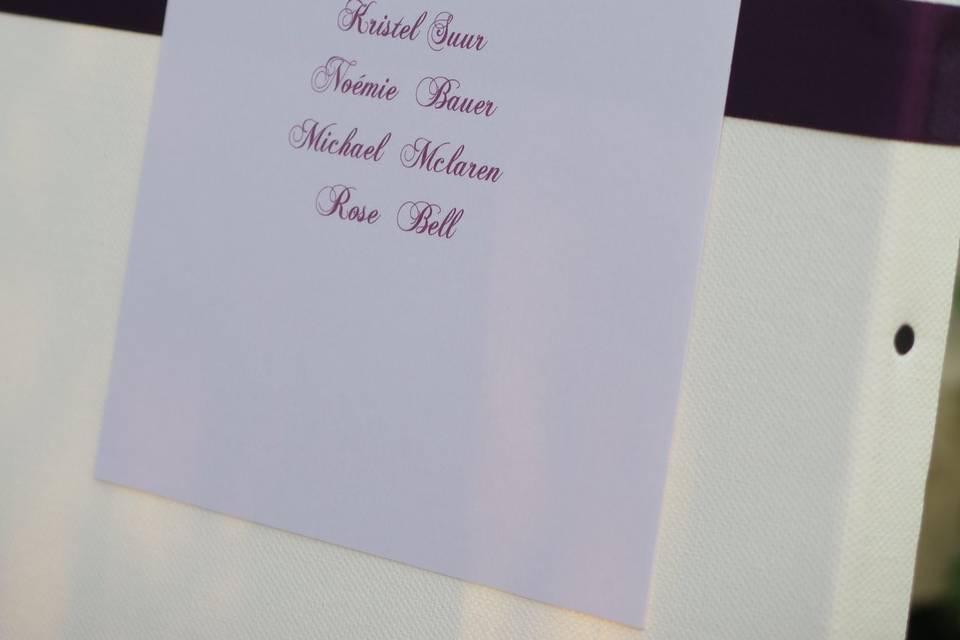 Kristel Suur
Noémie Bauer
Michael Mclaren
Rose Bell